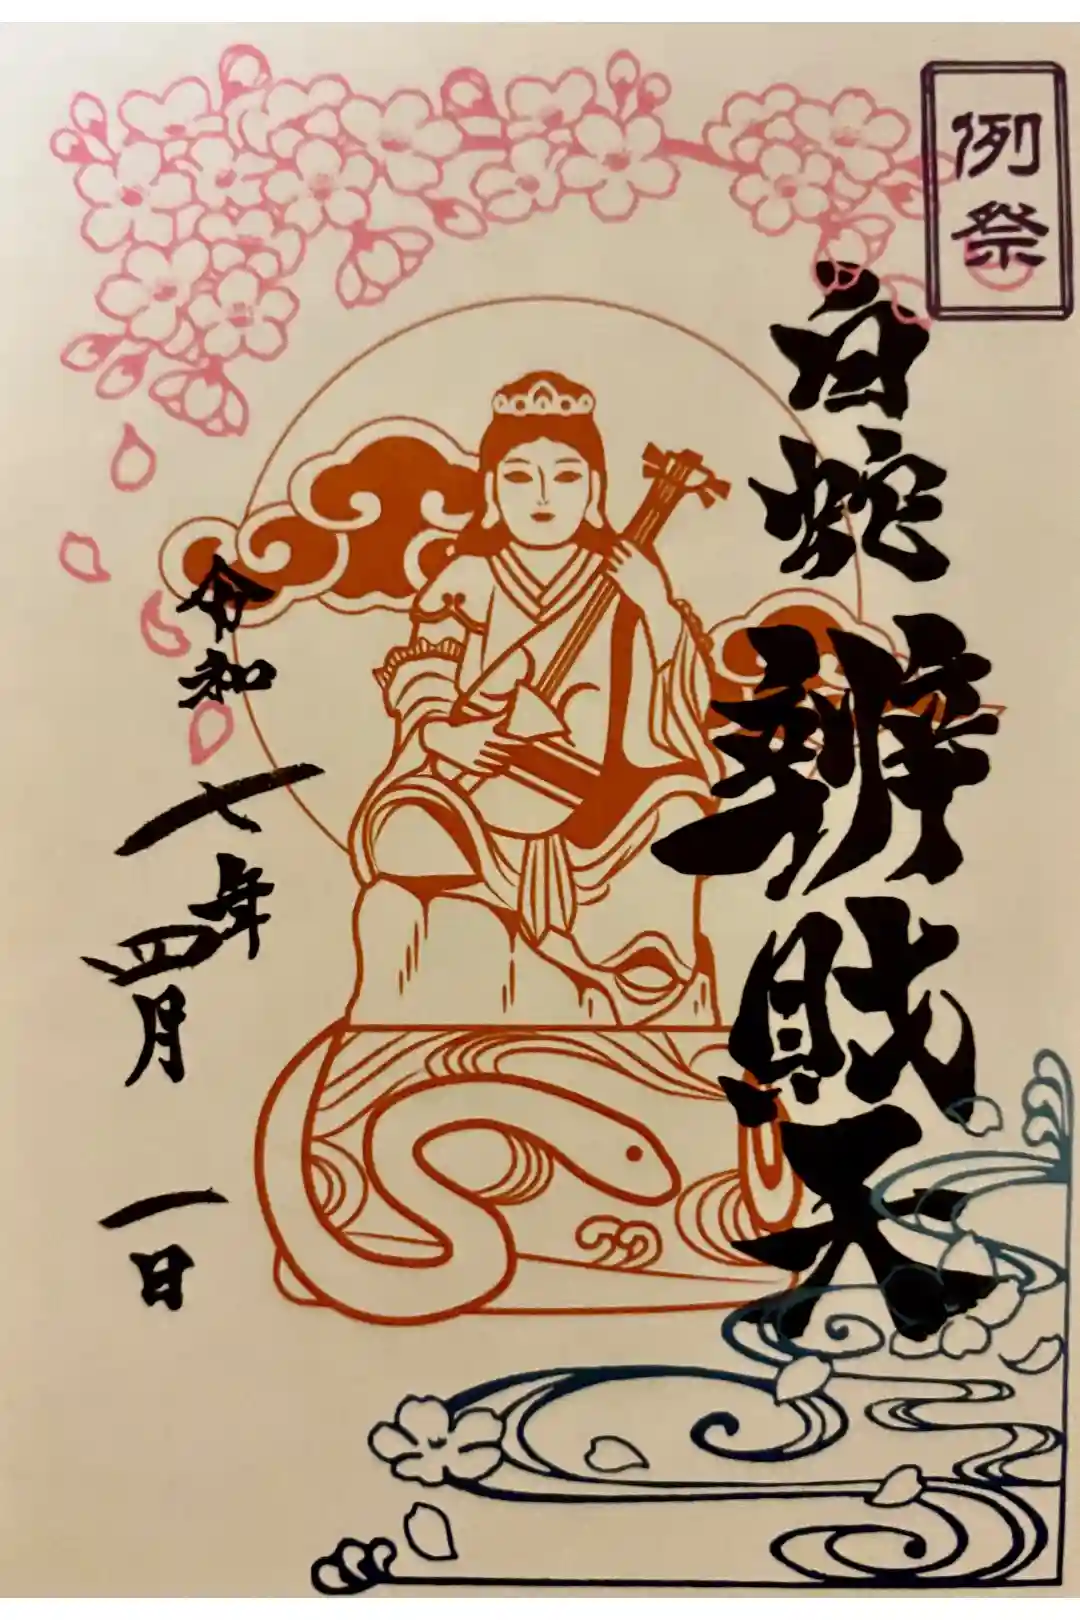 例祭
白蛇辨財天
令和七年四月一日